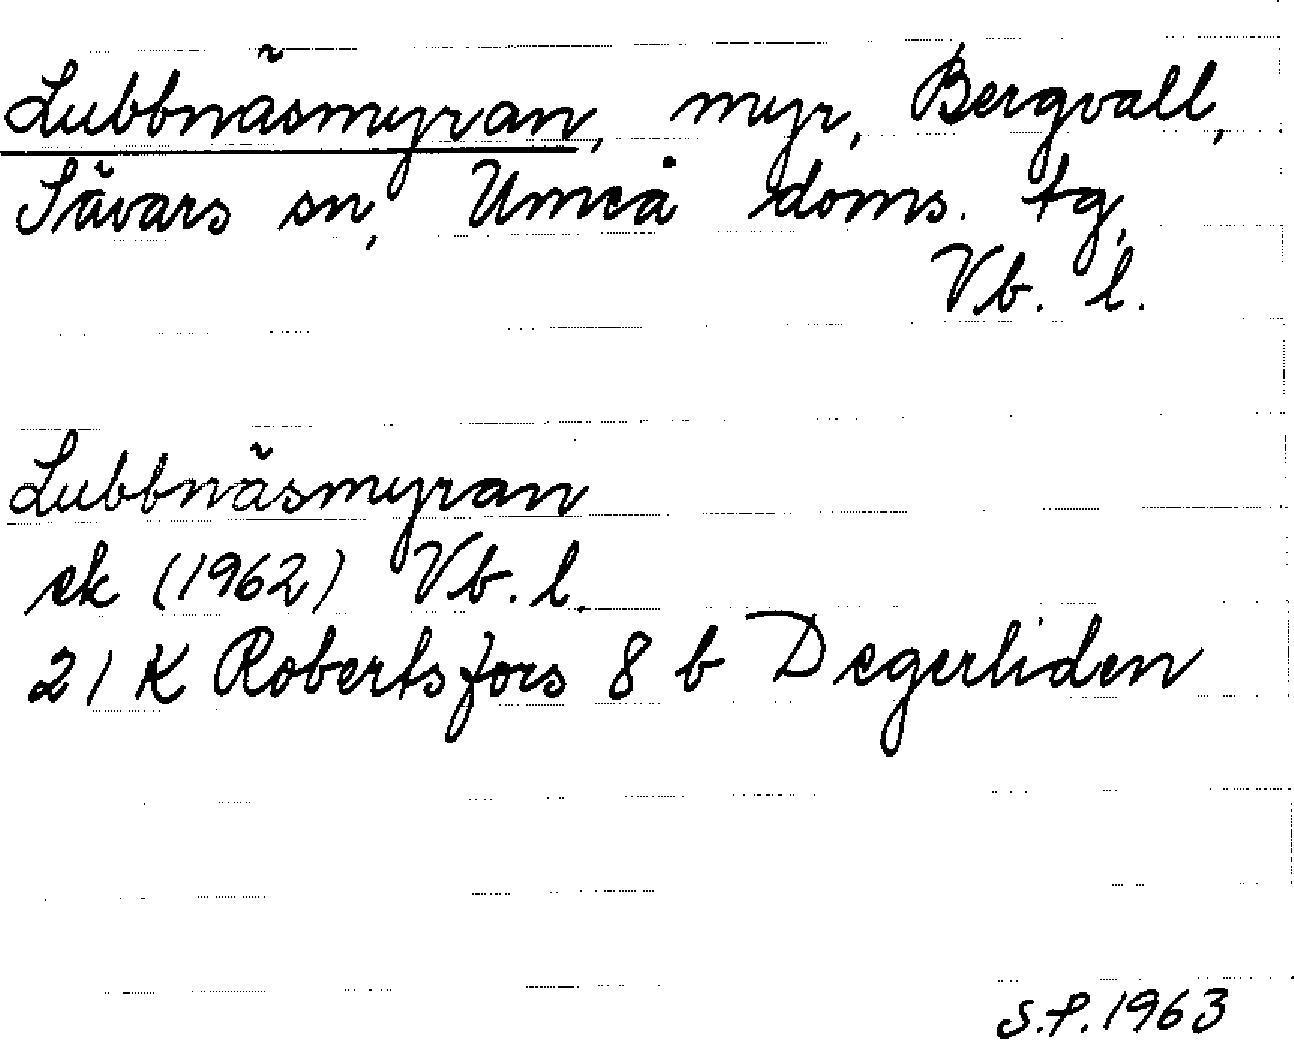 Lubbnäsmyran, myr, Bergvall,
Sävars sn, Umeå doms. tg,
Vb. l.
Lubbnäsmyran
ek (1962) Vb. l.
21 K Robertsfors 8 b Degerliden
S.P. 1963